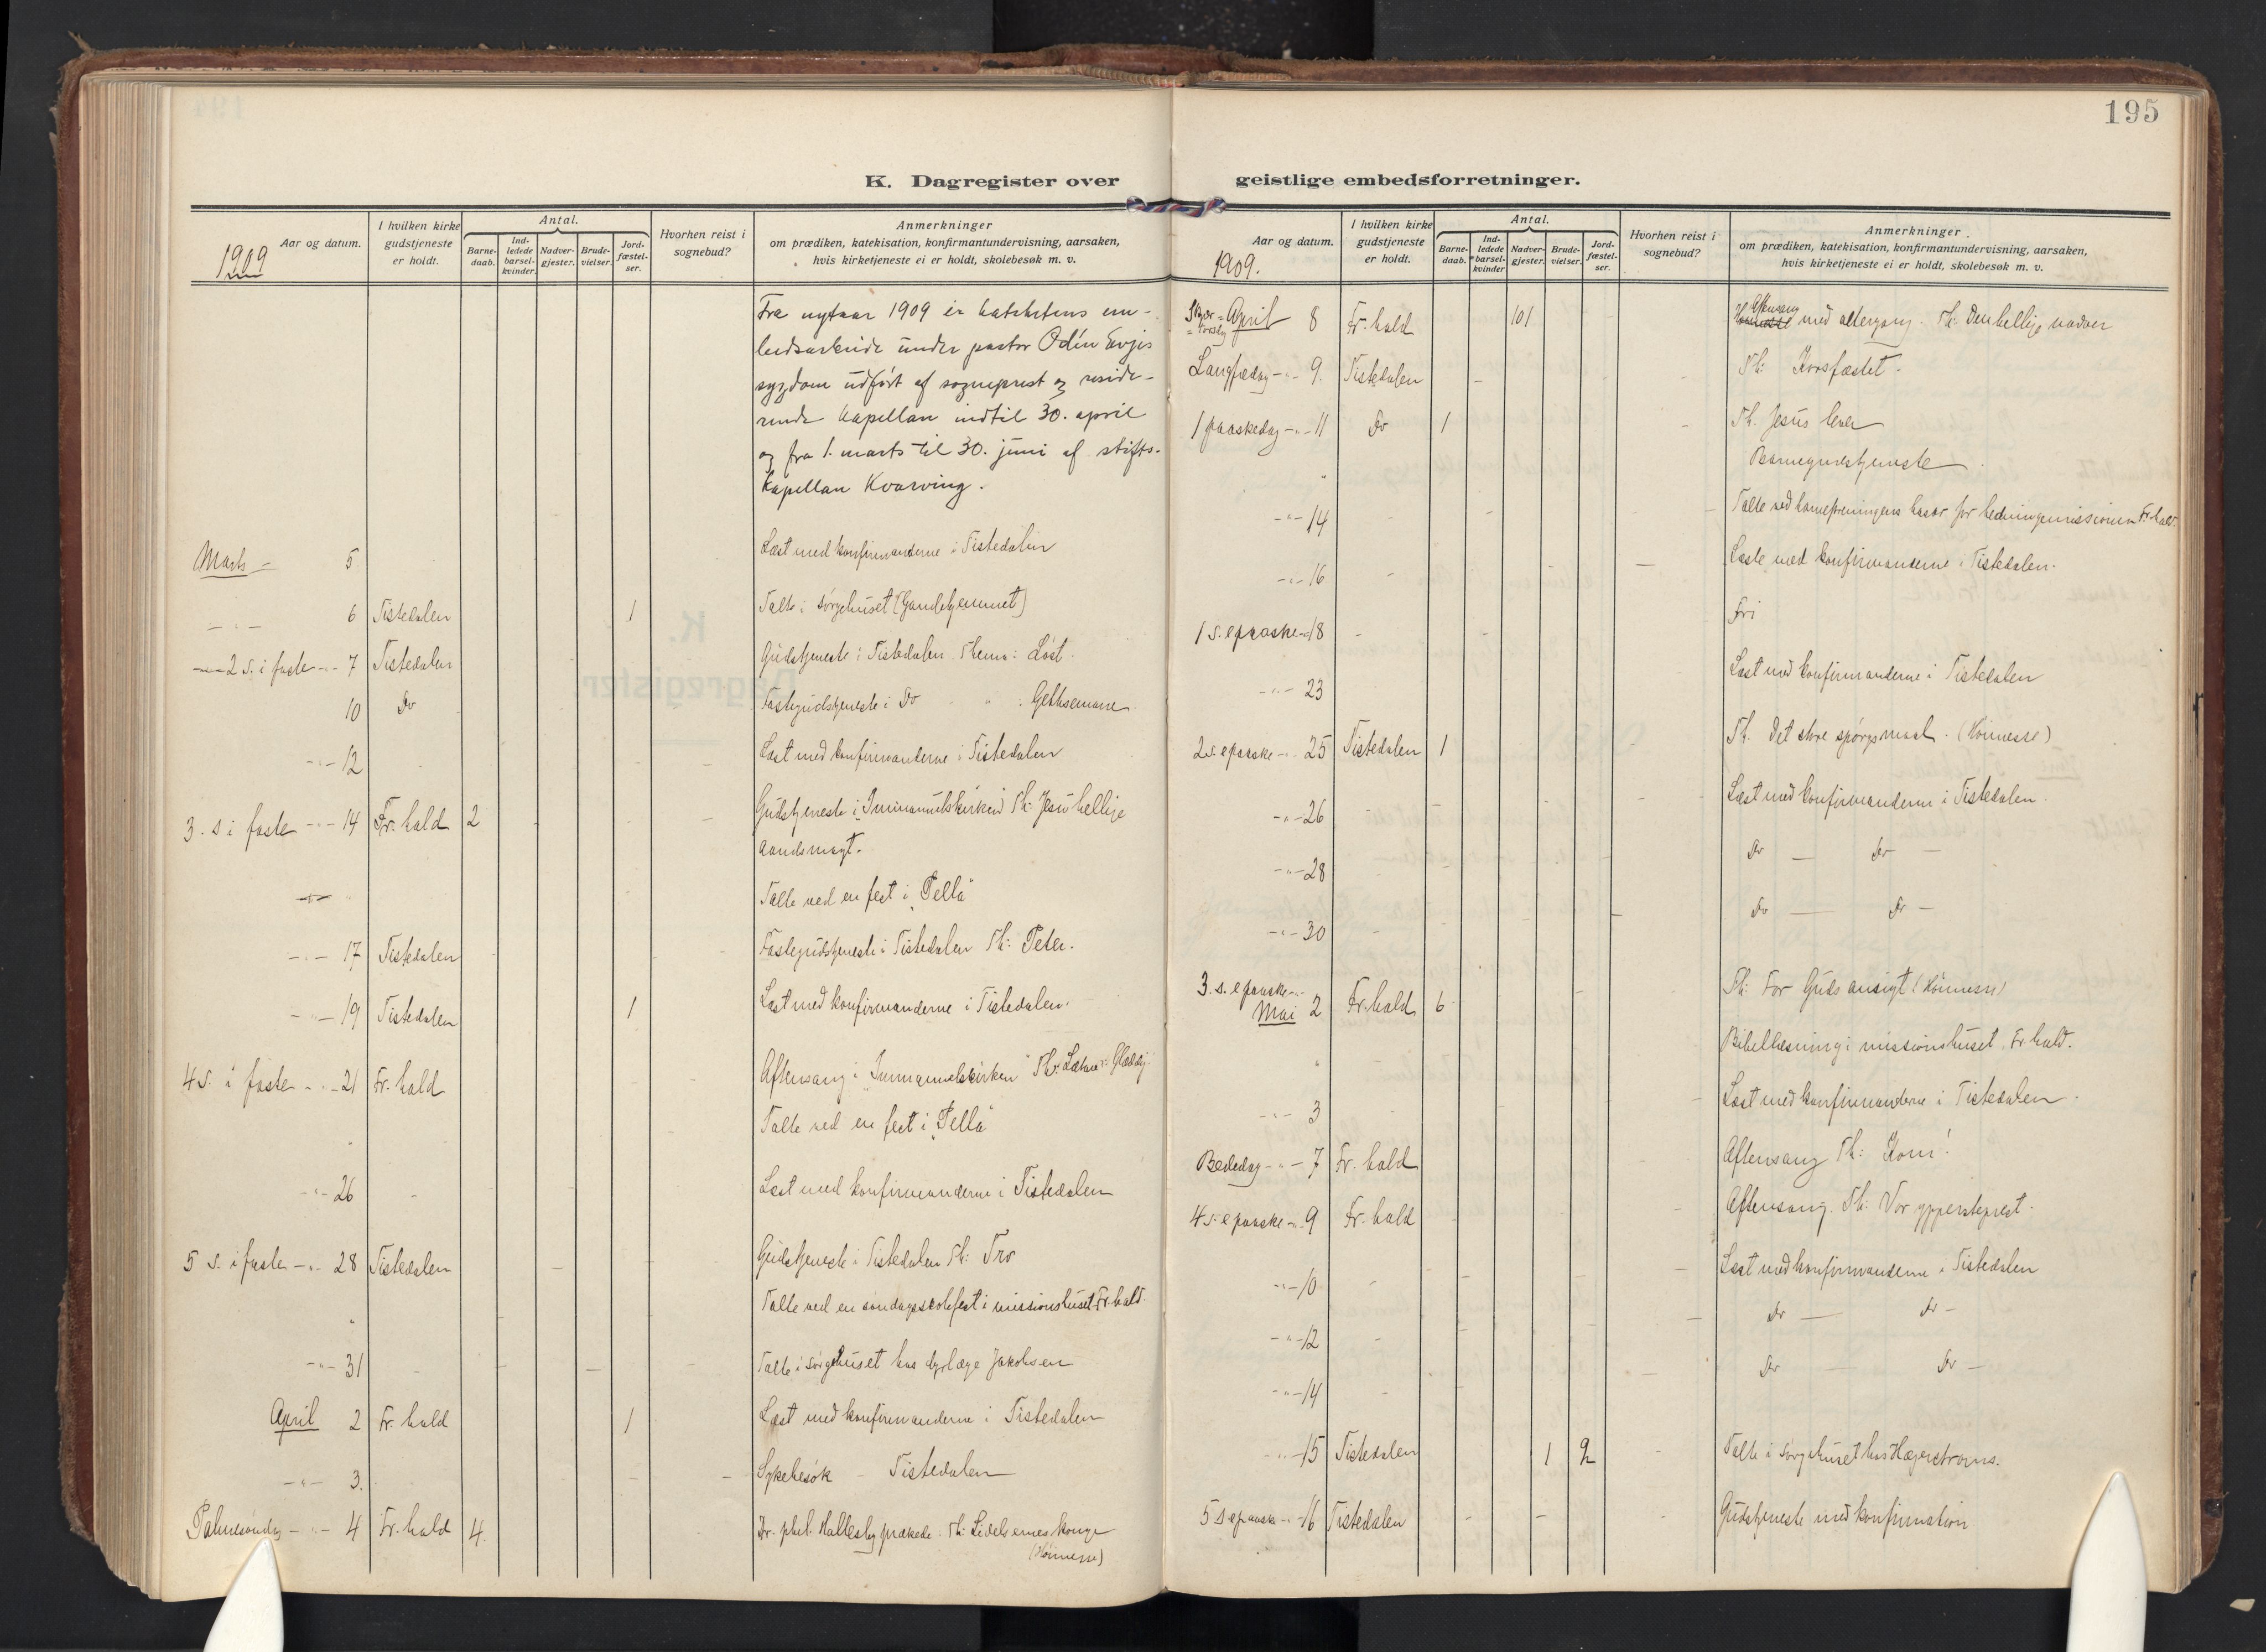 195
K. Dagregister over geistlige embedsforretninger.
1909 Aar og datum.
I hvilken kirke gudstjeneste er holdt.
Antal.
Barne-daab.
Ind-ledede barsel-kvinder.
Nadver-gjester.
Brude-vielser.
Jord-fæstel-ser.
Hvorhen reist i sognebud?
Anmerkninger
om prædiken, katekisation, konfirmantundervisning, aarsaken,
hvis kirketjeneste ei er holdt, skolebesøk m. v.
Fra nytaar 1909 er katekétens em-
bedsarbeide under pastor Odin Evjes
sygdom udført af sogneprest og reside-
rende kapellan indtil 30. april
og fra 1. marts til 30. juni af stifts-
kapellan Kvarving.
Marts - 5 Læst med konfirmanderne i Tistedalen
- " - 6 Tistedalen 1 Talte i sørgehuset (Gamlehjemmet)
- " - 2 s. i faste - " - 7 Tistedalen Gudstjeneste i Tistedalen Thema: Løst.
10 Do Fastegudstjeneste i Do " : Gethsemane
- " - 12 Læst med konfirmanderne i Tistedalen
3. s i faste - " - 14 Fr. hald 2 Gudstjeneste i "Immanuelskirken" Th: Jesu hellige
aandsmagt.
" Talte ved en fest i "Pella"
- " - 17 Tistedalen Fastegudstjeneste i Tistedalen Th: Peter.
- " - 19 Tistedalen 1 Læst med konfirmanderne i Tistedalen.
4 s. i faste - " - 21 Fr. hald Aftensang i "Immanuelskirken" Th:
" Talte ved en fest i "Pella"
- " - 26 Læst med konfirmanderne i Tistedalen
5 s. i faste - " - 28 Tistedalen Gudstjeneste i Tistedalen Th: Tro
" Talte ved en søndagsskolefest i missionshuset Fr. hald.
- " - 31 Talte i sørgehuset hos dyrlæge Jakobsen
April 2 Fr. hald 1 Læst med konfirmanderne i Tistedalen
- " - 3. Sykebesøk - Tistedalen
Palmesøndag - " - 4 Fr. hald 4 Dr. phil. Hallesby prækede. Th: Lidelsernes konge
(Høimesse)
Aar og datum.
1909.
I hvilken kirke gudstjeneste er holdt.
Antal.
Barne-daab.
Ind-ledede barsel-kvinder
Nadver-gjester.
Brude-vielser.
Jord-fæstel-ser.
Hvorhen reist i sognebud?
Anmerkninger
om prædiken, katekisation, konfirmantundervisning, aarsaken,
hvis kirketjeneste ei er holdt, skolebesøk m. v.
Skjær-torsdag April 8 Fr. hald 101 Aftensang med altergang. Th: Den hellige nadver
Langfredag - " - 9. Tistedalen Th: Korsfæstet.
1 paaskedag - " - 11 Do 1 Th. Jesus lever
" Barnegudstjeneste.
- " - 14 Talte ved barneforeningens basar for hedningemissionen Fr. hald.
- " - 16 Læste med konfirmanderne i Tistedalen.
1 s. e paaske - " 18 Fri
- " - 23 Læst med konfirmanderne i Tistedalen
2 s. e paaske - " - 25 Tistedalen 1 Th. Det store spørgsmaal. (Høimesse)
- " - 26 Læst med konfirmanderne i Tistedalen.
- " - 28 Do — Do —
- " - 30 Do — Do —
3. s. e paaske - " -
Mai 2 Fr. hald 6 Th: For Guds ansigt (Høimesse)
" Bibellæsning i missionshuset. Fr hald.
- " - 3 Læst med konfirmanderne i Tistedalen.
Bededag - " - 7 Fr. hald Aftensang Th: Kom!
4 s. e paaske - " 9 Fr. hald Aftensang. Th: Vor yppersteprest.
- " - 10 Læst med konfirmanderne i Tistedalen
- " - 12 Do — Do —
- " - 14 Do — Do —
- " - 15 Tistedalen 1 2 Talte i sørgehuset hos Hægerstrøms.
5 s e paaske - " - 16 Tistedalen Gudstjeneste med konfirmation